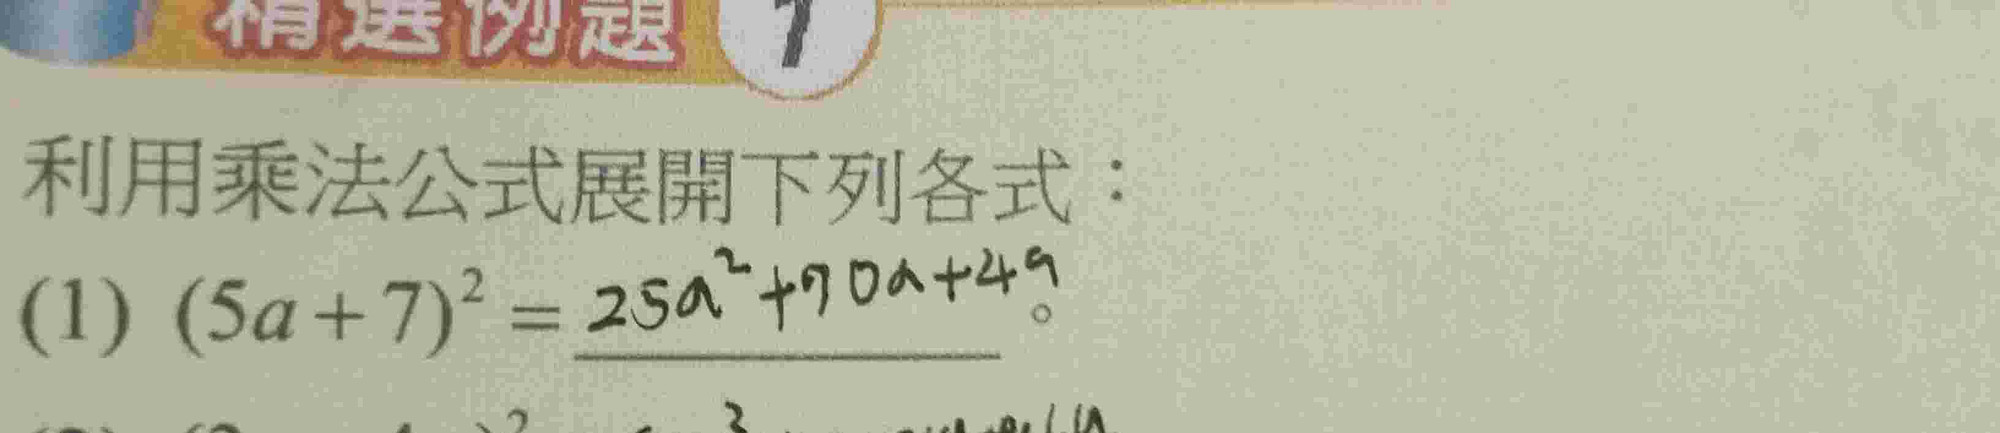 精選例題 1
利用乘法公式展開下列各式：
(1) (5a+7)² = 25a²+70a+49。